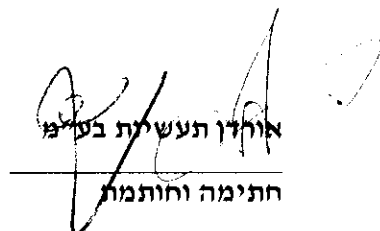 אורדן תעשיות בע״מ
חתימה וחותמת